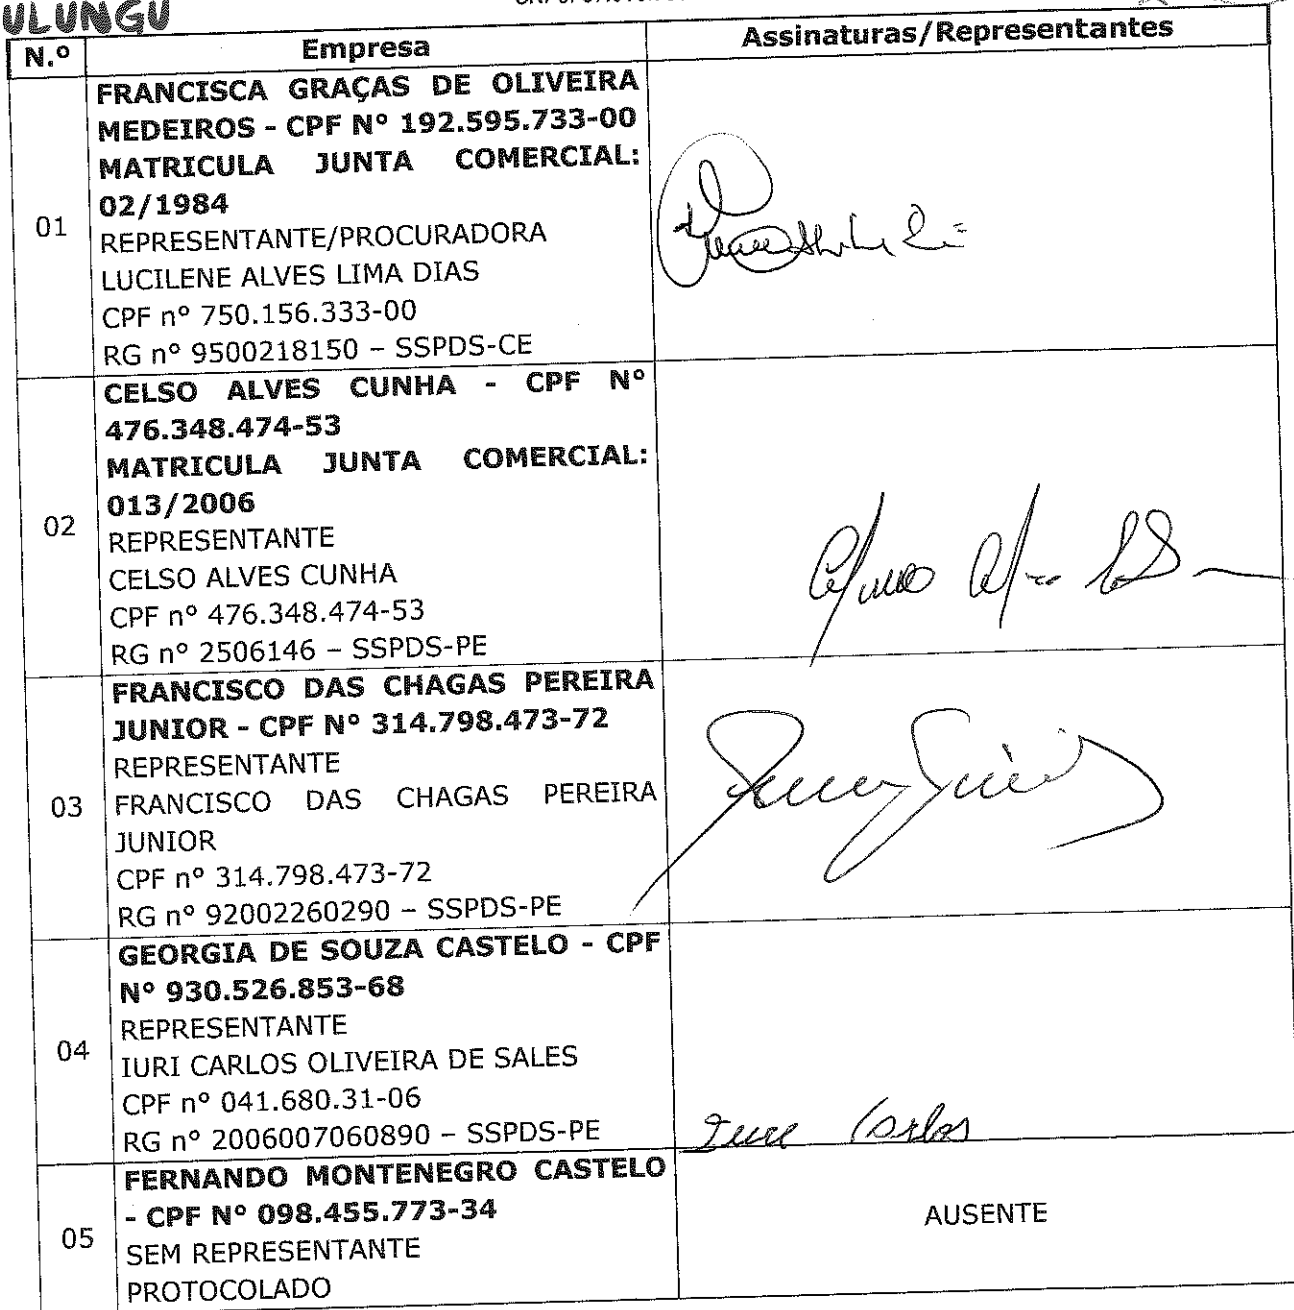 ULUNGU
N.º Empresa Assinaturas/Representantes
01
FRANCISCA GRAÇAS DE OLIVEIRA
MEDEIROS - CPF Nº 192.595.733-00
MATRICULA JUNTA COMERCIAL:
02/1984
REPRESENTANTE/PROCURADORA
LUCILENE ALVES LIMA DIAS
CPF nº 750.156.333-00
RG nº 9500218150 – SSPDS-CE
02
CELSO ALVES CUNHA - CPF Nº
476.348.474-53
MATRICULA JUNTA COMERCIAL:
013/2006
REPRESENTANTE
CELSO ALVES CUNHA
CPF nº 476.348.474-53
RG nº 2506146 – SSPDS-PE
03
FRANCISCO DAS CHAGAS PEREIRA
JUNIOR - CPF Nº 314.798.473-72
REPRESENTANTE
FRANCISCO DAS CHAGAS PEREIRA
JUNIOR
CPF nº 314.798.473-72
RG nº 92002260290 – SSPDS-PE
04
GEORGIA DE SOUZA CASTELO - CPF
Nº 930.526.853-68
REPRESENTANTE
IURI CARLOS OLIVEIRA DE SALES
CPF nº 041.680.31-06
RG nº 2006007060890 – SSPDS-PE
Carlos
05
FERNANDO MONTENEGRO CASTELO
- CPF Nº 098.455.773-34
SEM REPRESENTANTE
PROTOCOLADO
AUSENTE